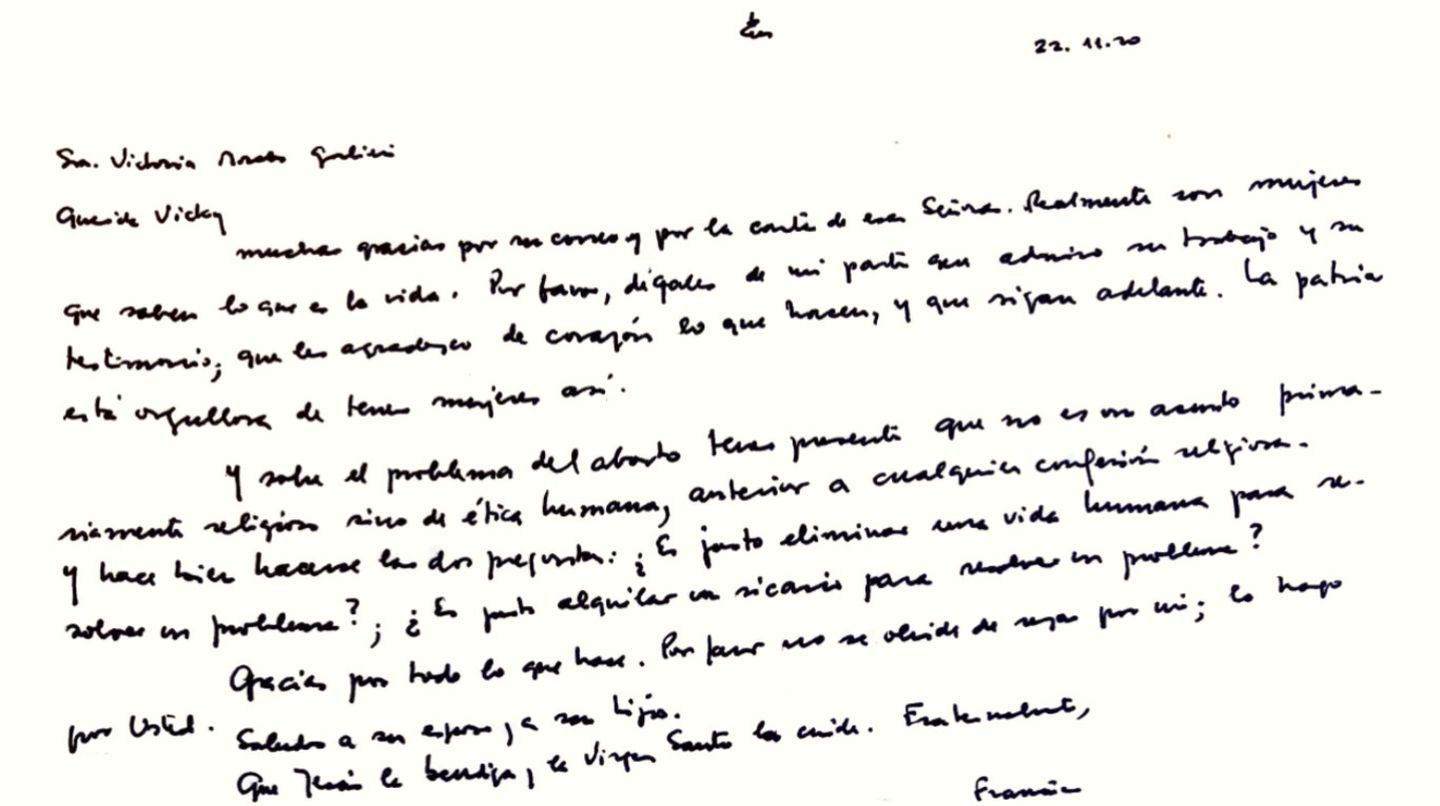 22. 11. 20
Sra. Victoria Morales Gorleri
Querida Vicky
muchas gracias por su correo y por la carta de esas Señoras. Realmente son mujeres
que saben lo que es la vida. Por favor, dígales de mi parte que admiro su trabajo y su
testimonio; que les agradezco de corazón lo que hacen, y que sigan adelante. La patria
está orgullosa de tener mujeres así.
Y sobre el problema del aborto tener presente que no es un asunto prima-
riamente religioso sino de ética humana, anterior a cualquier confesión religiosa.
Y hace bien hacerse las dos preguntas: ¿Es justo eliminar una vida humana para re-
solver un problema?; ¿Es justo alquilar un sicario para resolver un problema?
Gracias por todo lo que hace. Por favor no se olvide de rezar por mí; lo hago
por Usted.
Saludos a su esposo y a sus hijos.
Que Jesús la bendiga y la Virgen Santa la cuide. Fraternalmente,
Francisco